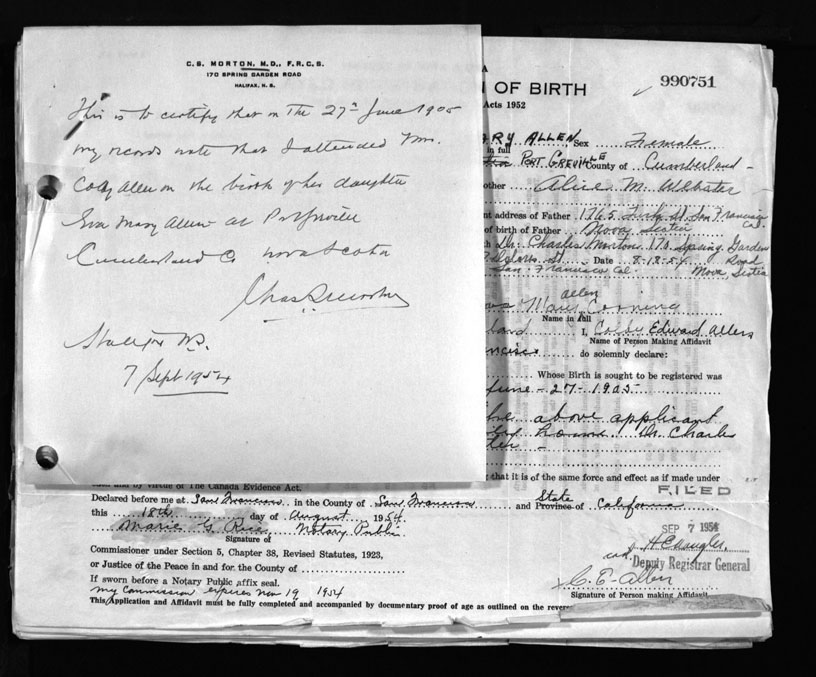 C. S. MORTON, M.D., F.R.C.S.
170 SPRING GARDEN ROAD
HALIFAX, N. S.
This is to certify that on The 27th June 1905
my records note that I attended Mrs.
Colby Allen on the birth of her daughter
Eva Mary Allen at
Cumberland Co Nova Scotia
Chas S Morton
Halifax NS.
7 Sept 1954
A
N OF BIRTH
990751
Acts 1952
ARY ALLEN Sex Female
in full
PORT GREVILLE County of Cumberland
other Alice M. Webster
nt address of Father 1765 Turk St San Francisco Cal.
of birth of Father Nova Scotia
h Dr. Charles Morton 170 Spring Garden Road
St. Date 8-18-54 Nova Scotia
San Francisco Cal.
allen
Mary Corning
Name in full
land I, Colby Edward Allen
Name of Person Making Affidavit
ncisco do solemnly declare:
Whose Birth is sought to be registered was
June - 27 - 1905
the above applicant
home Dr. Charles
that it is of the same force and effect as if made under
and by virtue of The Canada Evidence Act.
FILED
Declared before me at San Francisco in the County of San Francisco and State Province of California
this 18th day of August 1954
SEP 7 1954
Marie G. Rice Notary Public
Signature of
Commissioner under Section 5, Chapter 38, Revised Statutes, 1923,
or Justice of the Peace in and for the County of
Deputy Registrar General
If sworn before a Notary Public affix seal.
C. E. Allen
my Commission expires Nov 19 1954
Signature of Person making Affidavit
This Application and Affidavit must be fully completed and accompanied by documentary proof of age as outlined on the revers